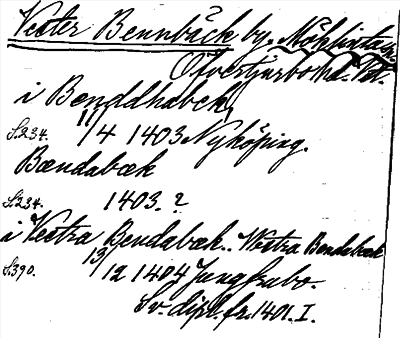 Vester Bennbäck by. Möklinta sn.
Öfvertjurbohd. Vtl.
i Benddhabek
S. 234. 11/4 1403 Nyköping.
Bændabæk
S. 234. 1403.?
i Vestra Bendabæk. Westra Bendabæk
S. 390. 13/12 1404 Jungfrubo.
Sv. dipl. fr. 1401. I.